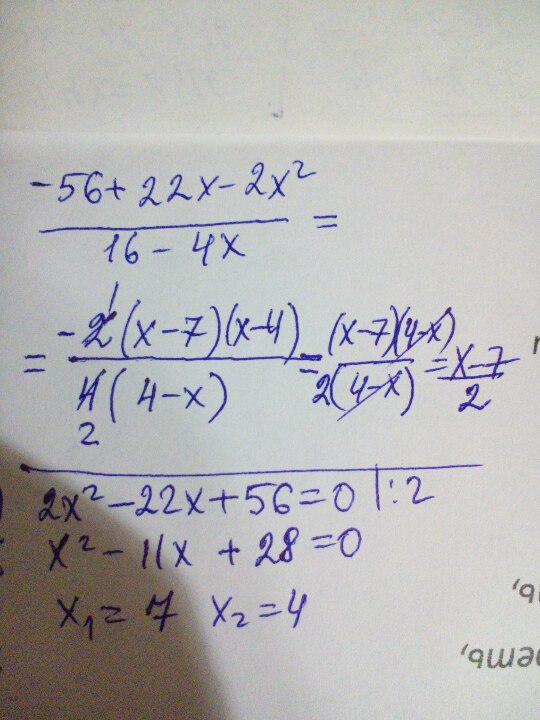 -56+22x-2x²
16-4x =
= -2(x-7)(x-4) / 4(4-x) = (x-7)(4-x) / 2(4-x) = x-7 / 2
1
2
2x²-22x+56=0 |:2
x²-11x+28=0
x₁=7 x₂=4